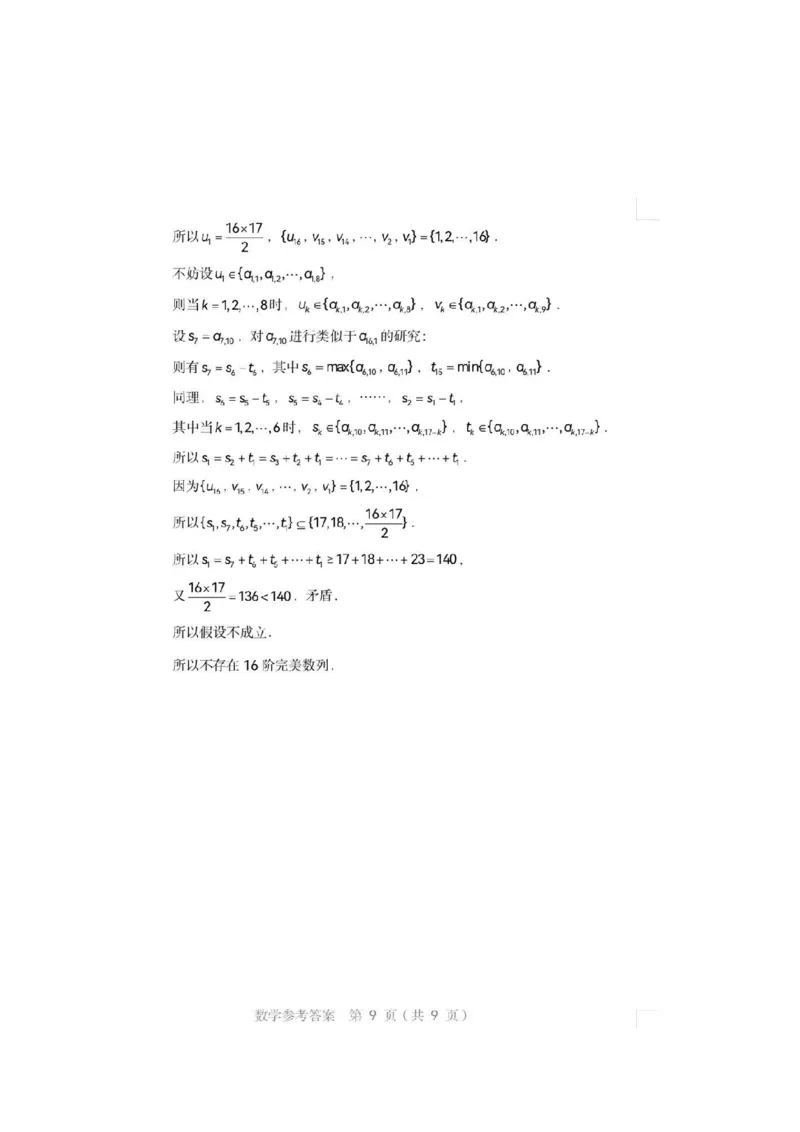 所以u₁ = 16×17/2 , {u₁₆ , v₁₅ , v₁₄ , ⋯ , v₂ , v₁} = {1,2,⋯,16} .
不妨设u₁ ∈ {a₁,₁,a₁,₂,⋯,a₁,₈} ,
则当k = 1,2,⋯,8时, uₖ ∈ {aₖ,₁,aₖ,₂,⋯,aₖ,₈} , vₖ ∈ {aₖ,₁,aₖ,₂,⋯,aₖ,₉} .
设s₇ = a₇,₁₀ , 对a₇,₁₀进行类似于a₁₆,₁的研究:
则有s₇ = s₆ − t₆ , 其中s₆ = max{a₆,₁₀ , a₆,₁₁} , t₁₅ = min{a₆,₁₀ , a₆,₁₁} .
同理, s₆ = s₅ − t₅ , s₅ = s₄ − t₄ , ⋯⋯, s₂ = s₁ − t₁ ,
其中当k = 1,2,⋯,6时, sₖ ∈ {aₖ,₁₀,aₖ,₁₁,⋯,aₖ,₁₇₋ₖ} , tₖ ∈ {aₖ,₁₀,aₖ,₁₁,⋯,aₖ,₁₇₋ₖ} .
所以s₁ = s₂ + t₁ = s₃ + t₂ + t₁ = ⋯ = s₇ + t₆ + t₅ + ⋯ + t₁ .
因为{u₁₆ , v₁₅ , v₁₄ , ⋯ , v₂ , v₁} = {1,2,⋯,16} ,
所以{s₁,s₇,t₆,t₅,⋯,t₁} ⊆ {17,18,⋯,16×17/2} .
所以s₁ = s₇ + t₆ + t₅ + ⋯ + t₁ ≥ 17+18+⋯+23 = 140 ,
又16×17/2 = 136 < 140 , 矛盾.
所以假设不成立.
所以不存在 16 阶完美数列.
数学参考答案 第 9 页(共 9 页)